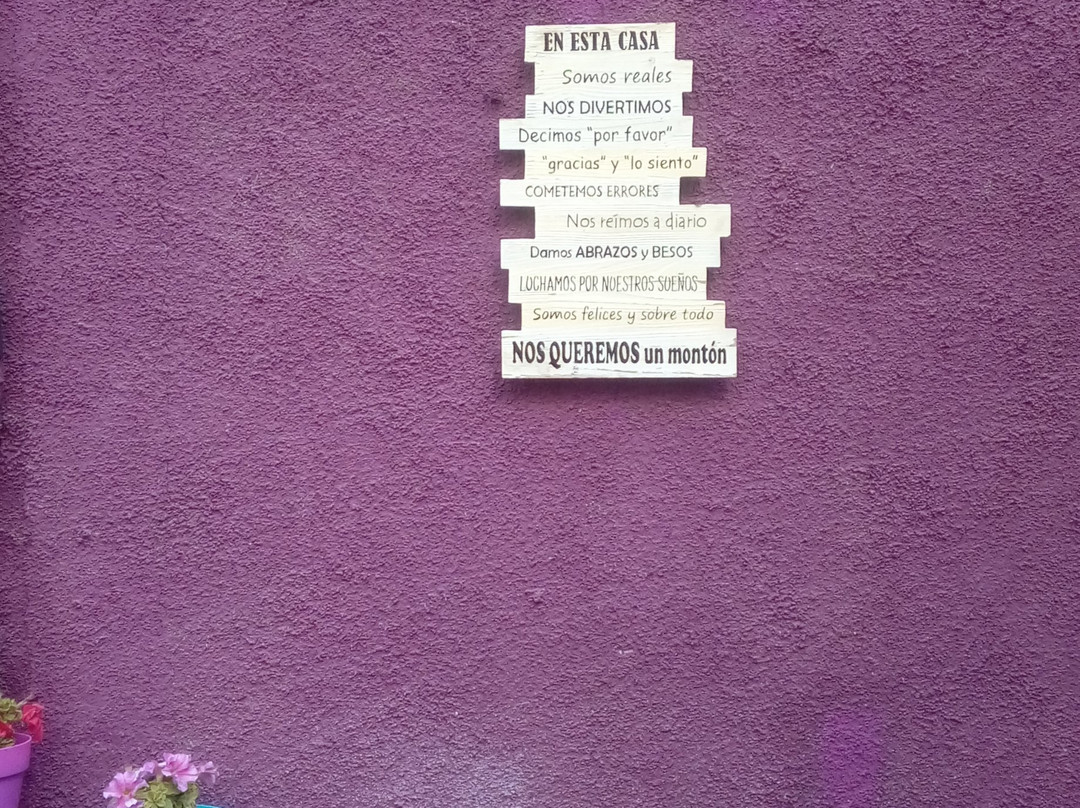 EN ESTA CASA
Somos reales
NOS DIVERTIMOS
Decimos "por favor"
"gracias" y "lo siento"
COMETEMOS ERRORES
Nos reímos a diario
Damos ABRAZOS y BESOS
LUCHAMOS POR NUESTROS SUEÑOS
Somos felices y sobre todo
NOS QUEREMOS un montón